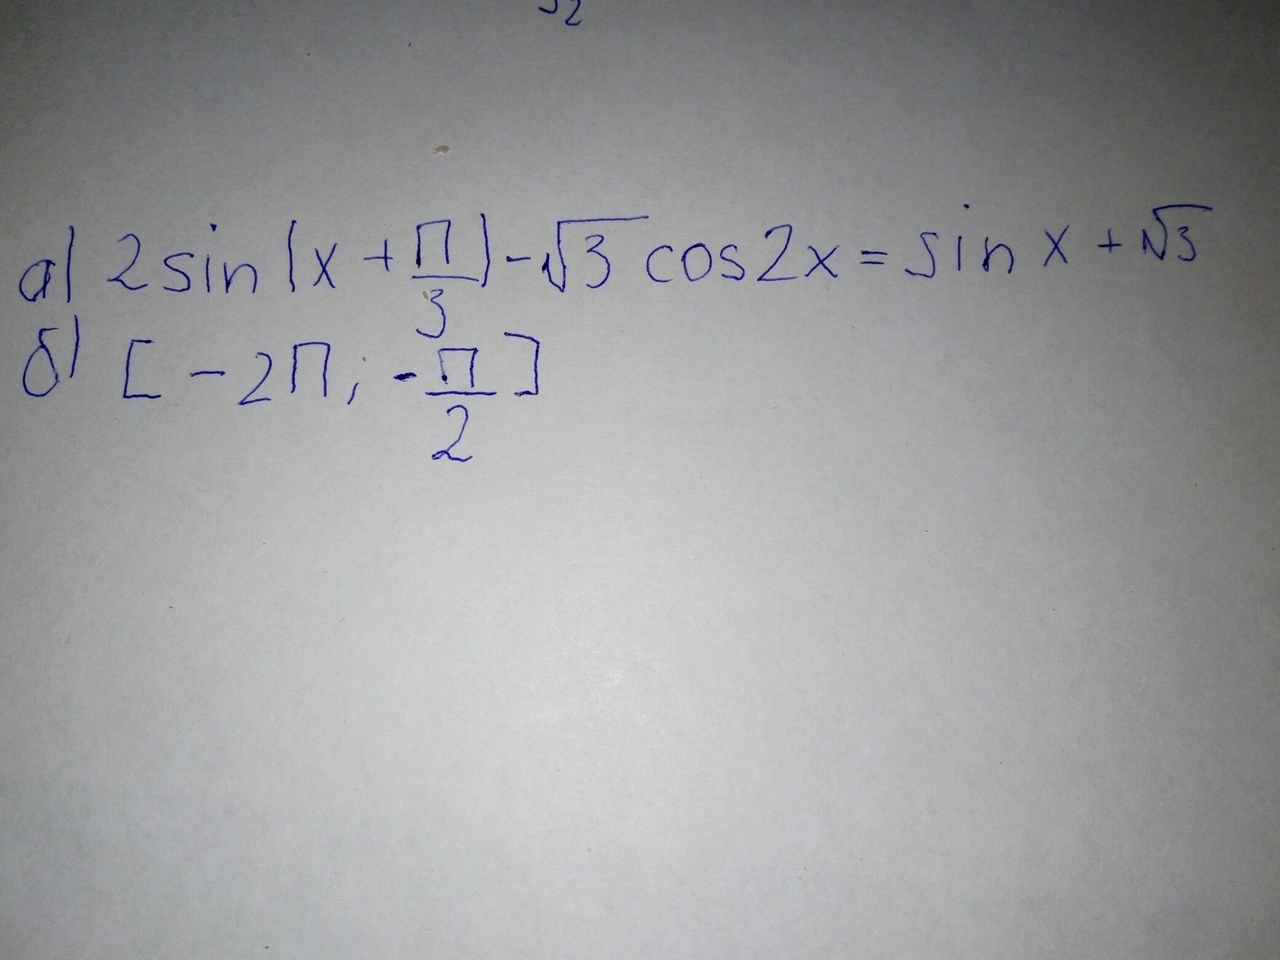 а) 2sin(x + П/3) - √3 cos2x = sin x + √3
б) [-2П; -П/2]